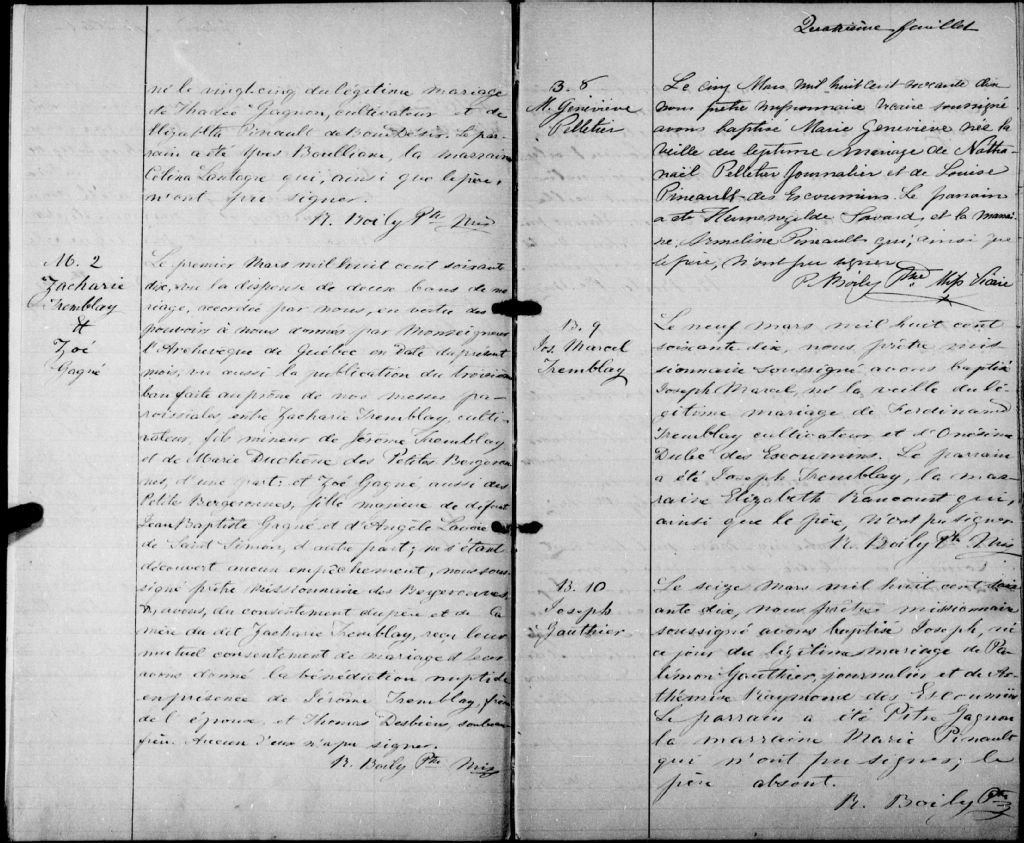 né le vingt-cinq du légitime mariage
de Thadée Gagnon, cultivateur et de
Pinault de Bon Désir. Le par-
rain a été Yves Boulliane, la marraine
Célina Lantagne qui, ainsi que le père,
n'ont pu signer.
R. Boily Ptre Miss
M. 2
Zacharie
Tremblay
&
Zoé
Gagné
Le premier Mars mil huit cent soixante
dix, vu la dispense de deux bans de ma-
riage, accordée par nous, en vertu des
pouvoirs à nous donnés par Monseigneur
l'Archevêque de Québec en date du présent
mois, vu aussi la publication du troisième
ban faite au prône de nos messes pa-
roissiales entre Zacharie Tremblay, culti-
vateur, fils mineur de Jérôme Tremblay
et de Marie Duchêne des Petites Bergeron-
nes, d'une part; et Zoé Gagné aussi des
Petites Bergeronnes, fille majeure de défunt
Jean Baptiste Gagné et d'Angèle Lavoie
de Saint Simon, d'autre part; ne s'étant
découvert aucun empêchement, nous sous-
signé prêtre missionnaire des Bergeronnes,
avons, du consentement du père et de la
mère du dit Zacharie Tremblay, reçu leur
mutuel consentement de mariage et leur
avons donné la bénédiction nuptiale
en présence de Jérôme Tremblay, frère
de l'époux, et Thomas Desbiens, son beau
frère. Aucun d'eux n'a pu signer.
R. Boily Ptre Miss
Quatrième feuillet
B. 8
M. Geneviève
Pelletier
Le cinq Mars mil huit cent soixante dix
nous prêtre missionnaire vicaire soussigné
avons baptisé Marie Geneviève née la
veille du légitime mariage de Natha-
naël Pelletier Journalier et de Louise
Pineault des Escoumins. Le parrain
a été Hermenegilde Savard et la marrai-
ne Armeline Pineault qui, ainsi que
le père, n'ont pu signer
P. Boily Ptre Miss Vicaire
B. 9
Jos. Marcel
Tremblay
Le neuf mars mil huit cent
soixante dix, nous prêtre mis
sionnaire soussigné avons baptisé
Joseph Marcel, né la veille du lé-
gitime mariage de Ferdinand
Tremblay cultivateur et d'Onésime
Dubé des Escoumins. Le parrain
a été Joseph Tremblay, la mar-
raine Elizabeth Rancourt qui,
ainsi que le père, n'ont pu signer
R. Boily Ptre Miss
B. 10
Joseph
Gauthier
Le seize Mars mil huit cent soix-
ante dix, nous prêtre missionnaire
soussigné avons baptisé Joseph, né
ce jour du légitime mariage de Pa-
lémon Gauthier, journalier et de Ar-
thémise Raymond des Escoumins
Le parrain a été Pitre Gagnon
la marraine Marie Pinault
qui n'ont pu signer; le
père absent.
R. Boily Ptre